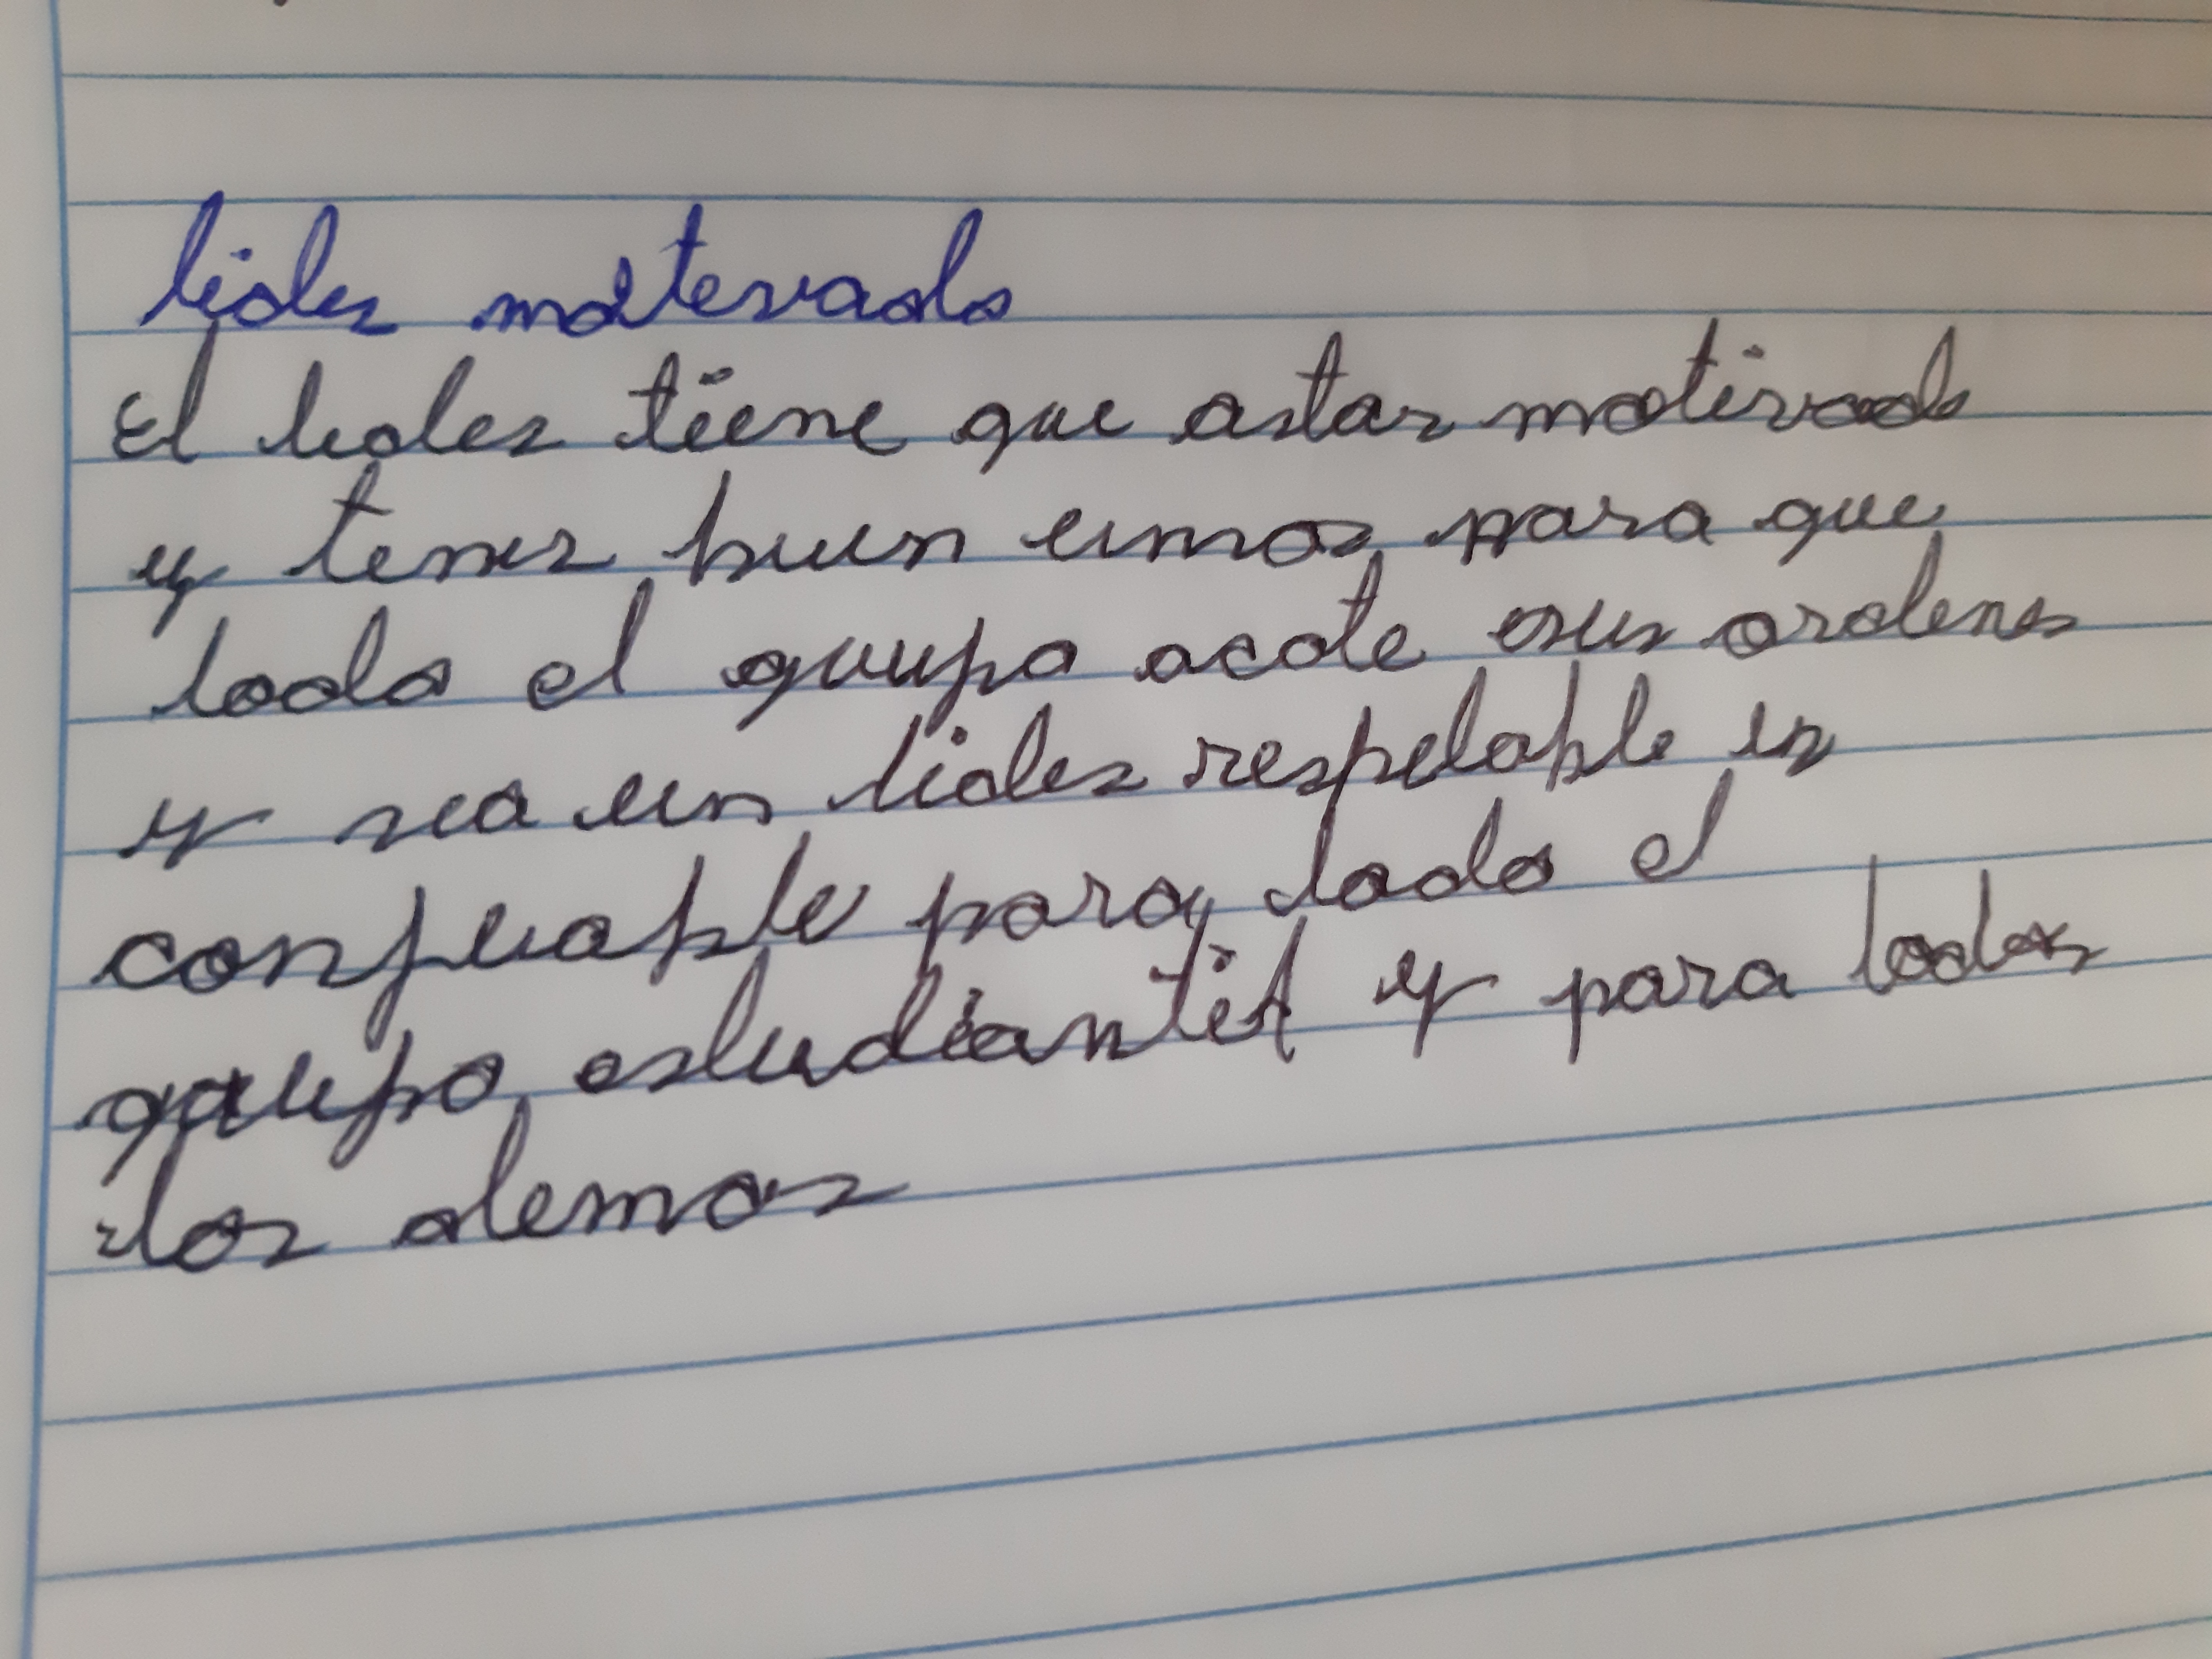 lider motevado
El lider tiene que astar motivado
y tener buen umor para que
todo el grupo acate sus ordenes
y sea un lider respetable es
confiable para todo el
grupo estudiantil y para todos
los demas